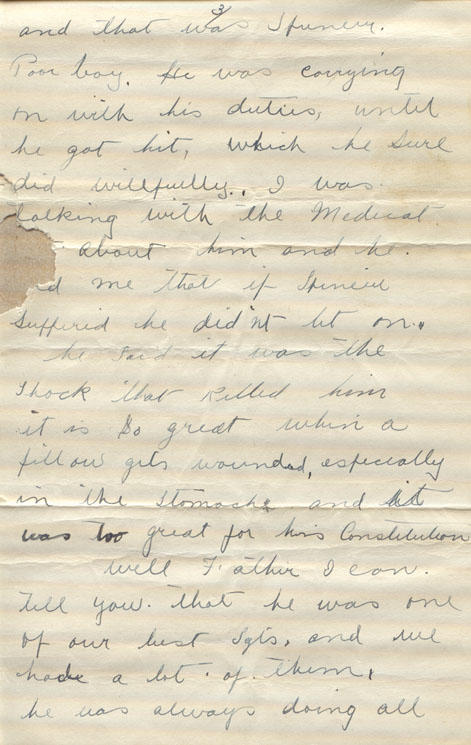 3/
and that was Spencer.
Poor boy. He was carrying
on with his duties, until
he got hit, which he sure
did willfully., I was
talking with the Medical.
about him and he.
d me that if Spencer
suffered he did'nt let on.
he said it was the
shock that killed him
it is so great when a
fellow gets wounded, especially
in the stomach, and it
was too great for his Constitution
well Father I can.
Tell you. that he was one
of our best Sgts, and we
had a lot. of. them,
he was always doing all